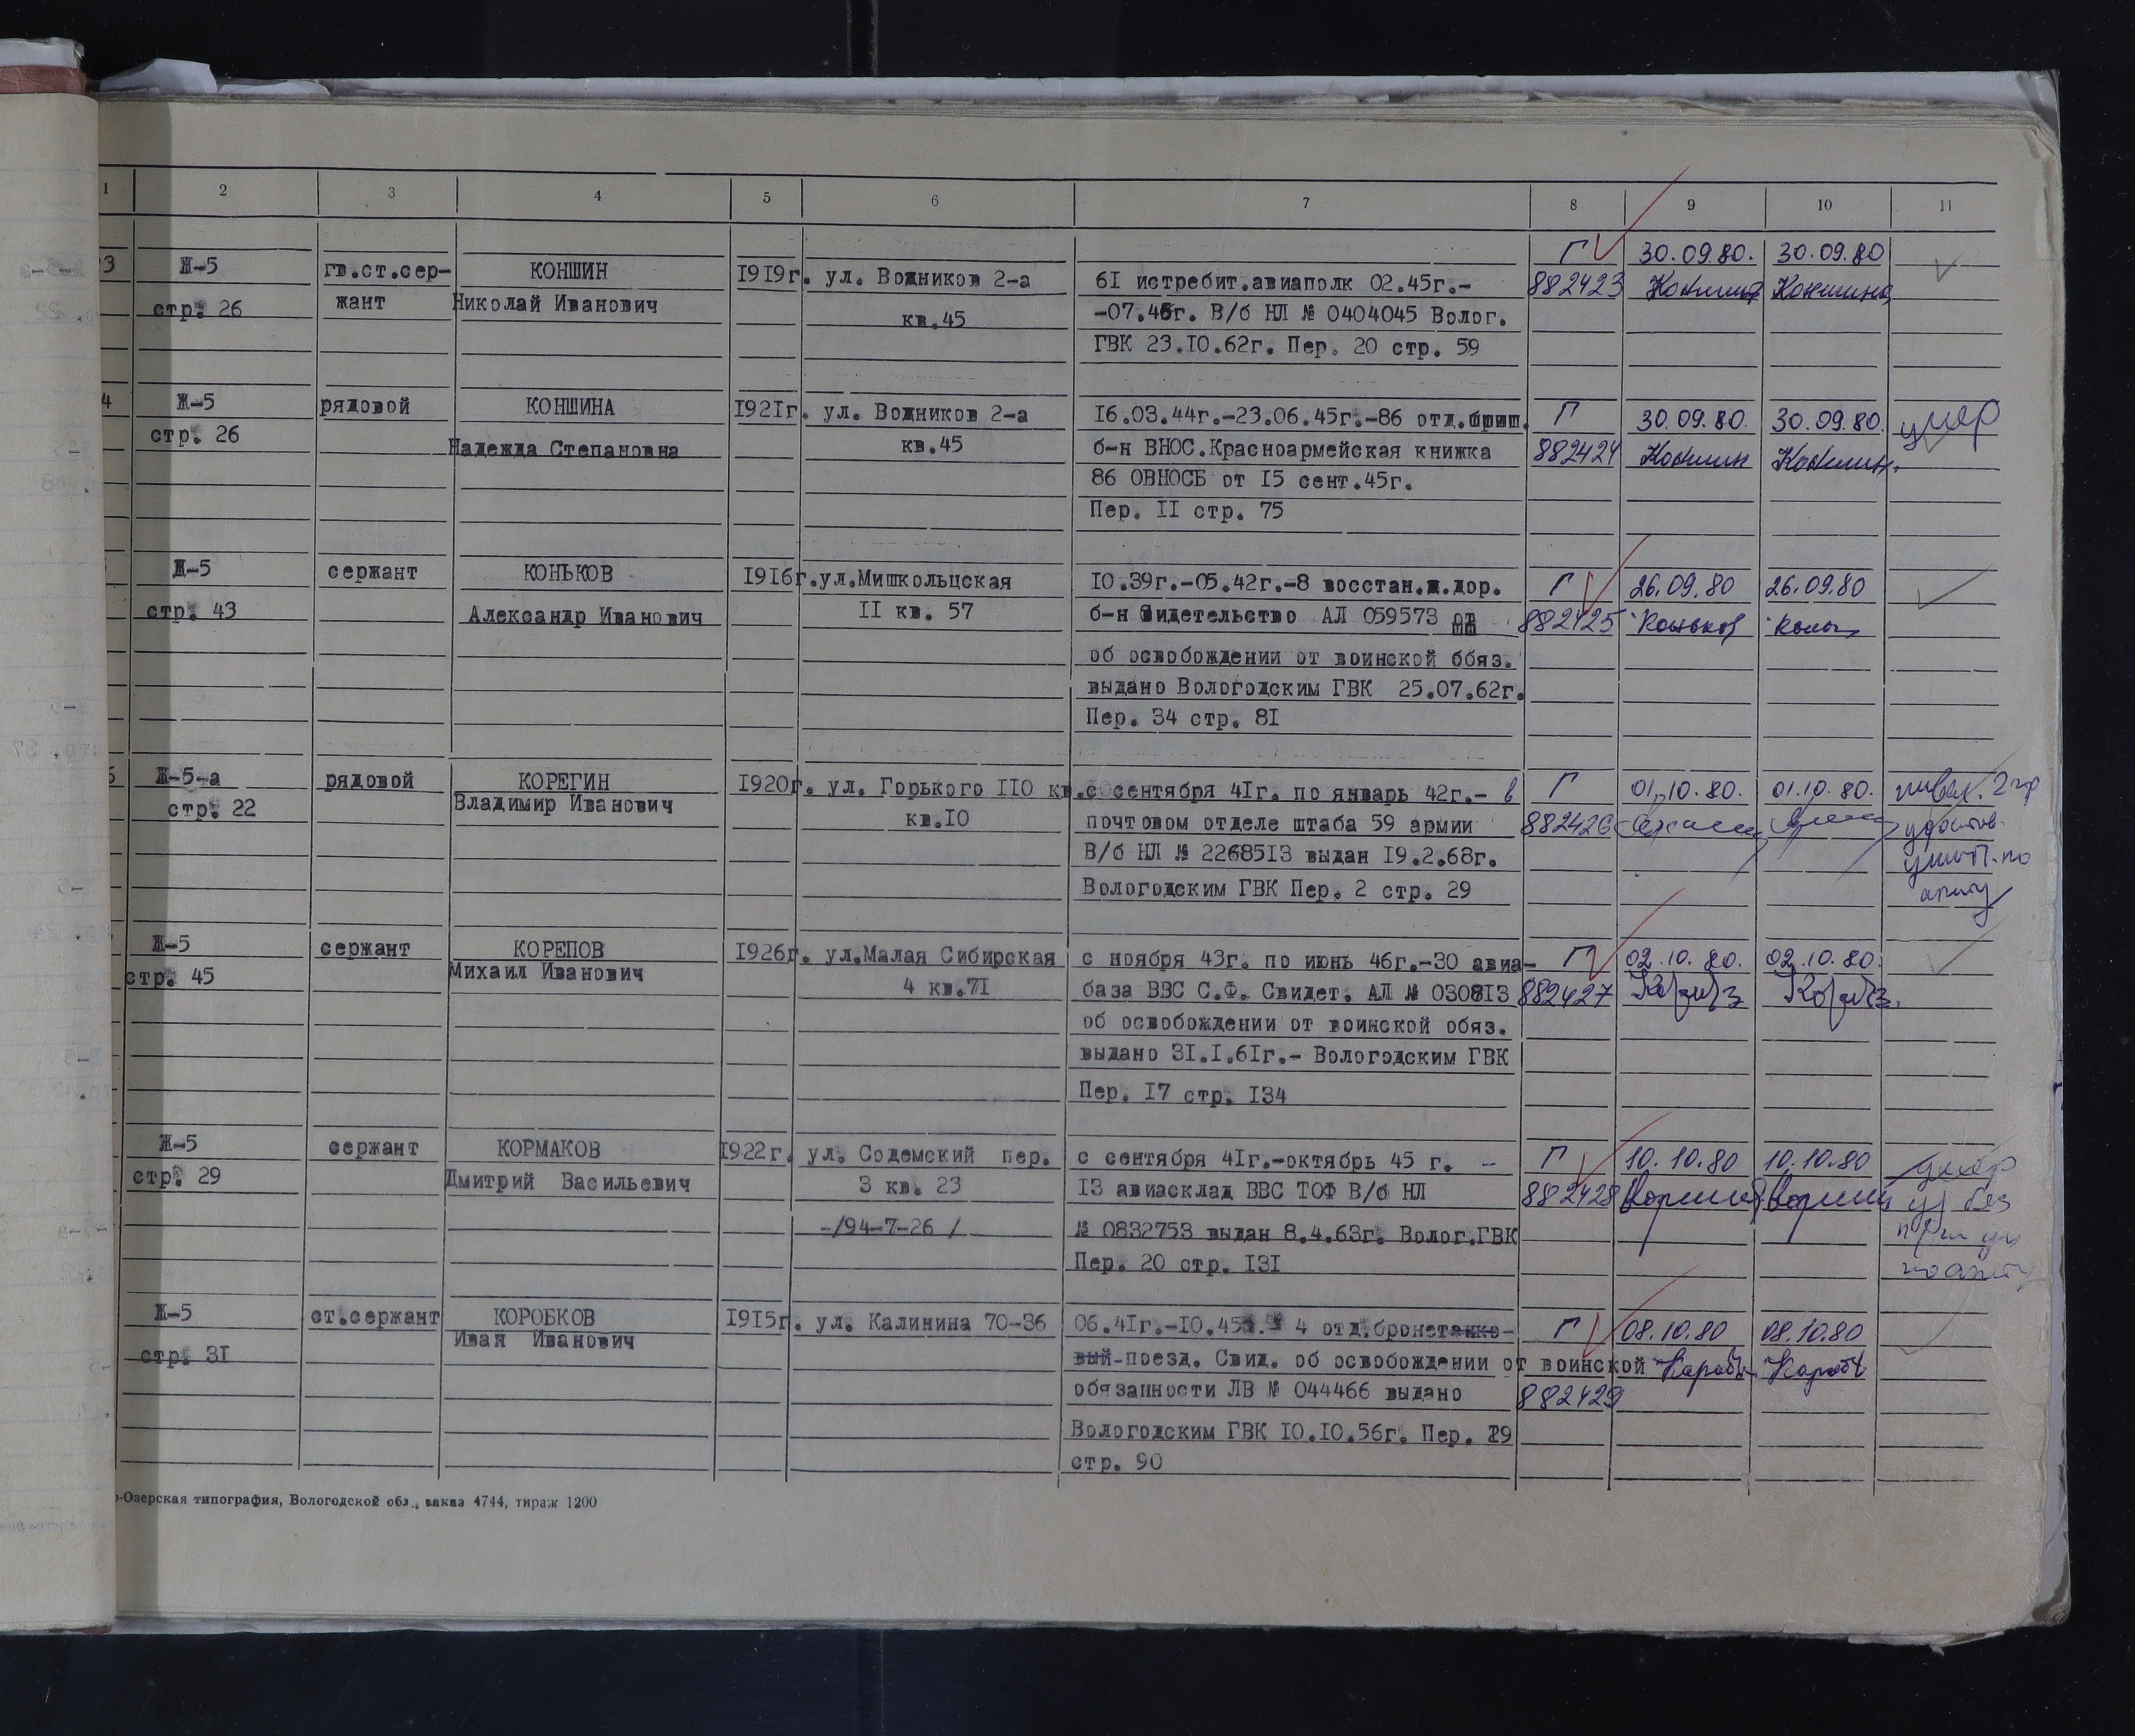 1 2 3 4 5 6 7 8 9 10 11
3 Ж-5 гв.ст.сер- КОНШИН 1919г. ул. Водников 2-а 61 истребит.авиаполк 02.45г.- Г 30.09.80. 30.09.80
стр. 26 жант Николай Иванович кв.45 -07.45г. В/б НЛ № 0404045 Волог. 882423
ГВК 23.10.62г. Пер. 20 стр. 59
4 Ж-5 рядовой КОНШИНА 1921г. ул. Водников 2-а 16.03.44г.-23.06.45г.-86 отд. Г 30.09.80. 30.09.80. умер
стр. 26 Надежда Степановна кв.45 б-н ВНОС.Красноармейская книжка 882424
86 ОВНОСБ от 15 сент.45г.
Пер. II стр. 75
Ж-5 сержант КОНЬКОВ 1916г.ул.Мишкольцская 10.39г.-05.42г.-8 восстан.ж.дор. Г 26.09.80 26.09.80
стр. 43 Александр Иванович II кв. 57 б-н Свидетельство АЛ 059573 882425 Коньков
об освобождении от воинской обяз.
выдано Вологодским ГВК 25.07.62г.
Пер. 34 стр. 81
Ж-5-а рядовой КОРЕГИН 1920г. ул. Горького 110 кв. с сентября 41г. по январь 42г.- в Г 01.10.80. 01.10.80.
стр. 22 Владимир Иванович кв.10 почтовом отделе штаба 59 армии 882426
В/б НЛ № 2268513 выдан 19.2.68г.
Вологодским ГВК Пер. 2 стр. 29
Ж-5 сержант КОРЕПОВ 1926г. ул.Малая Сибирская с ноября 43г. по июнь 46г.-30 авиа- Г 02.10.80. 02.10.80.
стр. 45 Михаил Иванович 4 кв.71 база ВВС С.Ф. Свидет. АЛ № 030813 882427
об освобождении от воинской обяз.
выдано 31.1.61г.- Вологодским ГВК
Пер. 17 стр. 134
Ж-5 сержант КОРМАКОВ 1922г. ул. Содемский пер. с сентября 41г.-октябрь 45 г. - Г 10.10.80 10.10.80 умер
стр. 29 Дмитрий Васильевич 3 кв. 23 13 авиасклад ВВС ТОФ В/б НЛ 882428
-/94-7-26 / № 0832753 выдан 8.4.63г. Волог.ГВК
Пер. 20 стр. 131
Ж-5 ст.сержант КОРОБКОВ 1915г. ул. Калинина 70-36 06.41г.-10.45г. 4 отд.бронетанко- Г 08.10.80 08.10.80
стр. 31 Иван Иванович вый-поезд. Свид. об освобождении от воинской
обязанности ЛВ № 044466 выдано 882429
Вологодским ГВК 10.10.56г. Пер. 29
стр. 90
-Озерская типография, Вологодской обл., заказ 4744, тираж 1200